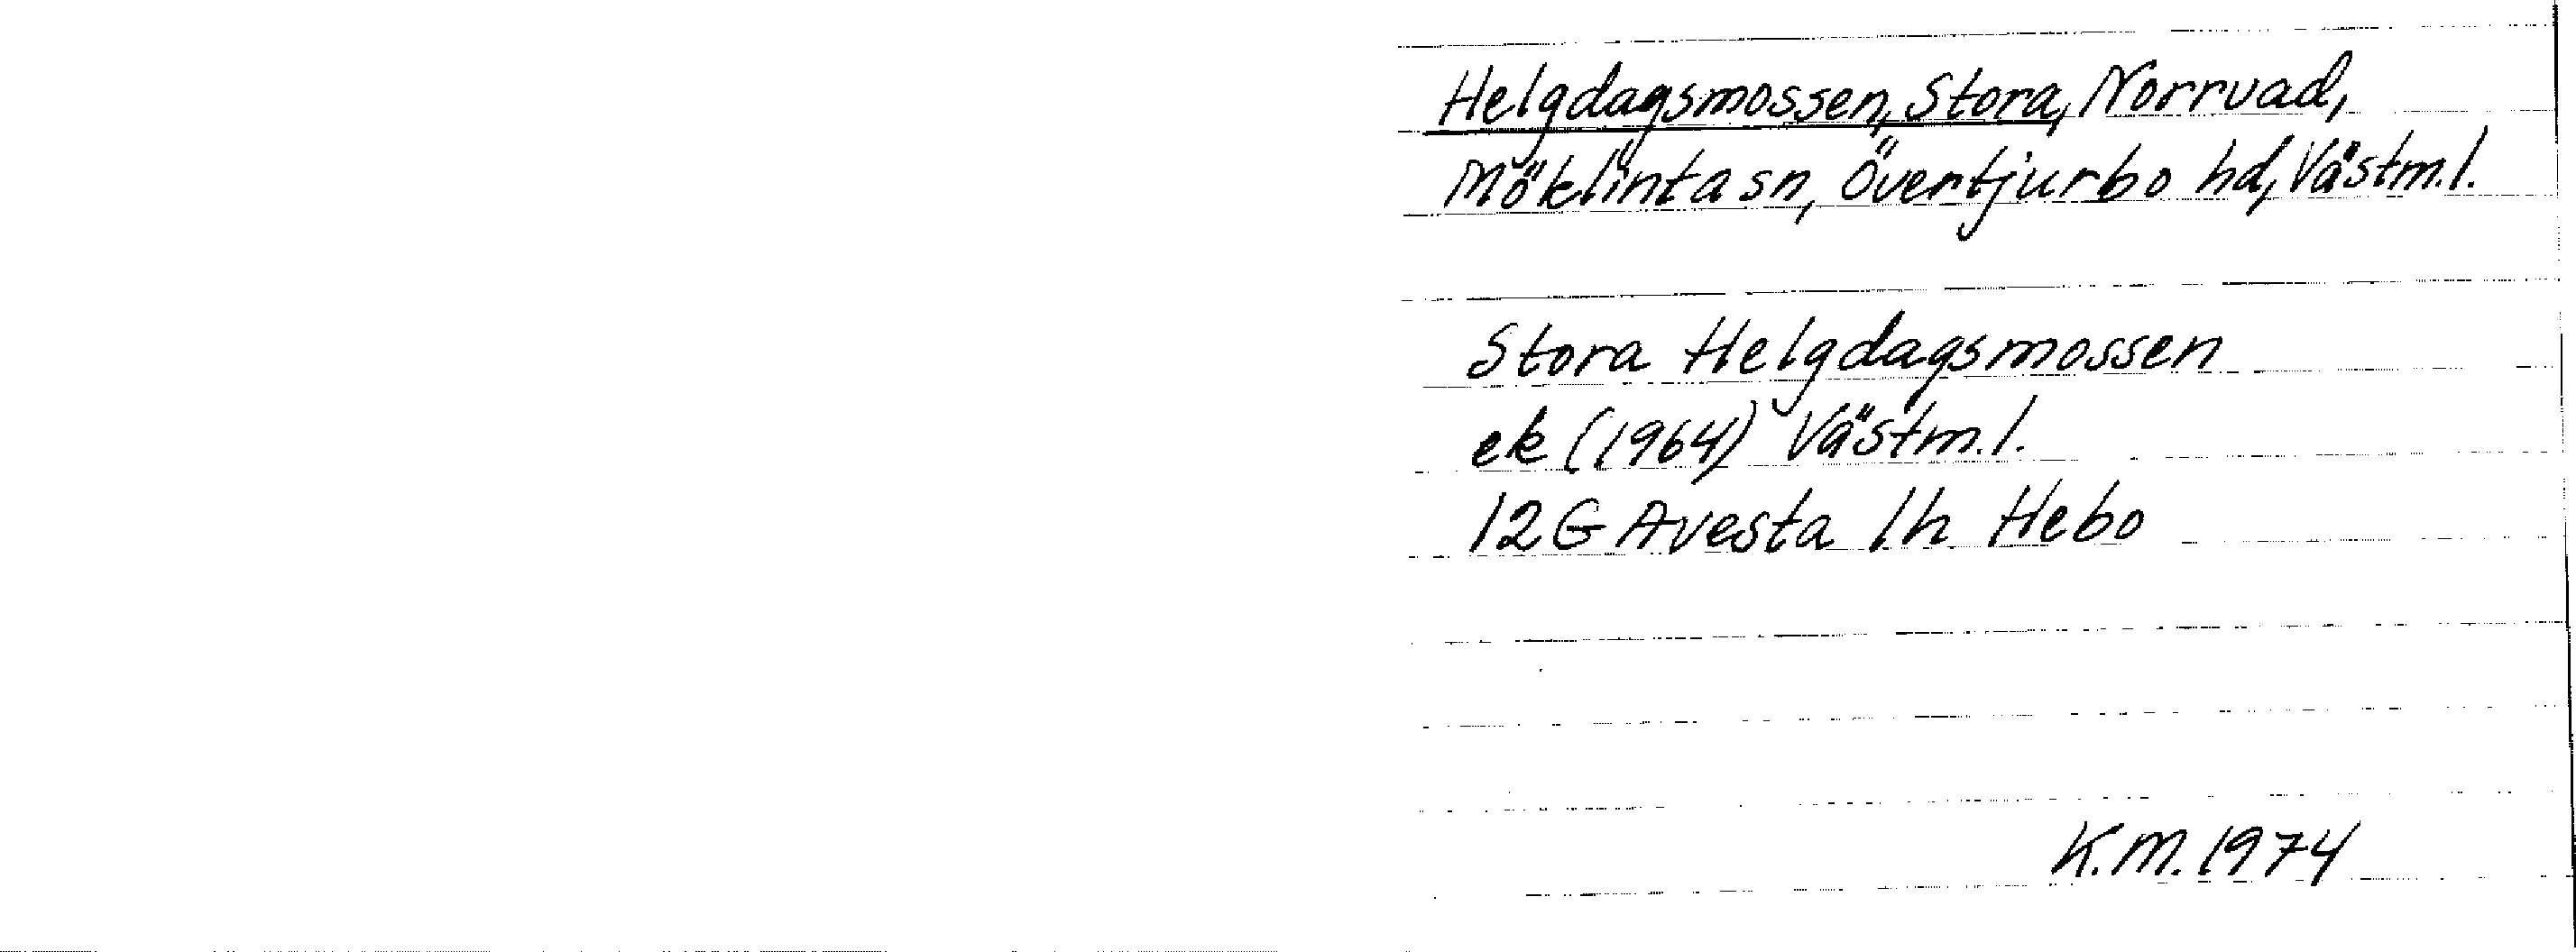 Helgdagsmossen, Stora, Norrvad,
Möklinta sn, Övertjurbo hd, Västm.l.
Stora Helgdagsmossen
ek (1964) Västm.l.
12G Avesta 1h Hebo
K.M. 1974